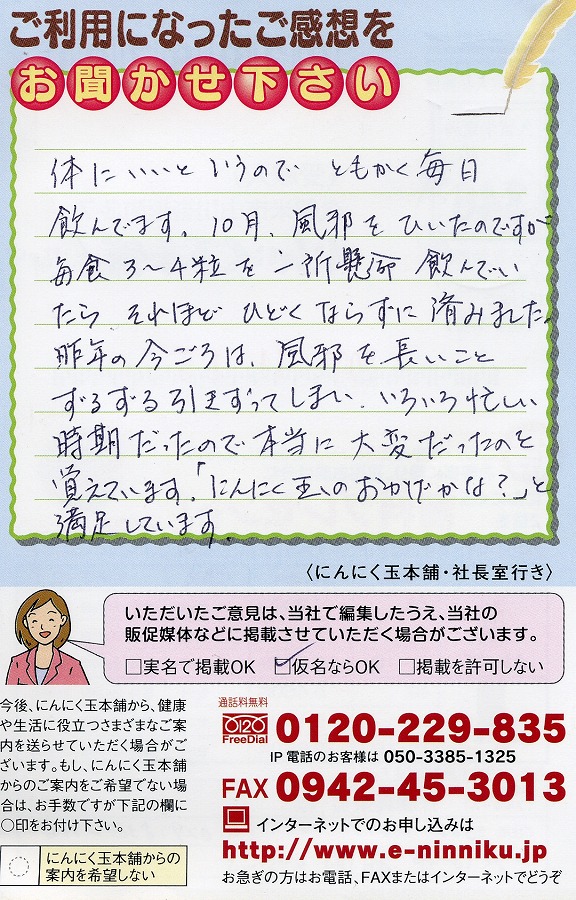 ご利用になったご感想を
お聞かせ下さい
体にいいというので ともかく毎日
飲んでます。10月、風邪をひいたのですが
毎食3〜4粒を一所懸命 飲んでい
たら それほど ひどくならずに済みました。
昨年の今ごろは、風邪を長いこと
ずるずる引きずってしまい、いろいろ忙しい
時期だったので本当に大変だったのを
覚えています。「にんにく玉のおかげかな?」と
満足しています。
〈にんにく玉本舗・社長室行き〉
いただいたご意見は、当社で編集したうえ、当社の
販促媒体などに掲載させていただく場合がございます。
□実名で掲載OK ☑仮名ならOK □掲載を許可しない
今後、にんにく玉本舗から、健康
や生活に役立つさまざまなご案
内を送らせていただく場合がご
ざいます。もし、にんにく玉本舗
からのご案内をご希望でない場
合は、お手数ですが下記の欄に
○印をお付け下さい。
にんにく玉本舗からの
案内を希望しない
通話料無料
0120
FreeDial 0120-229-835
IP電話のお客様は 050-3385-1325
FAX 0942-45-3013
インターネットでのお申し込みは
http://www.e-ninniku.jp
お急ぎの方はお電話、FAXまたはインターネットでどうぞ